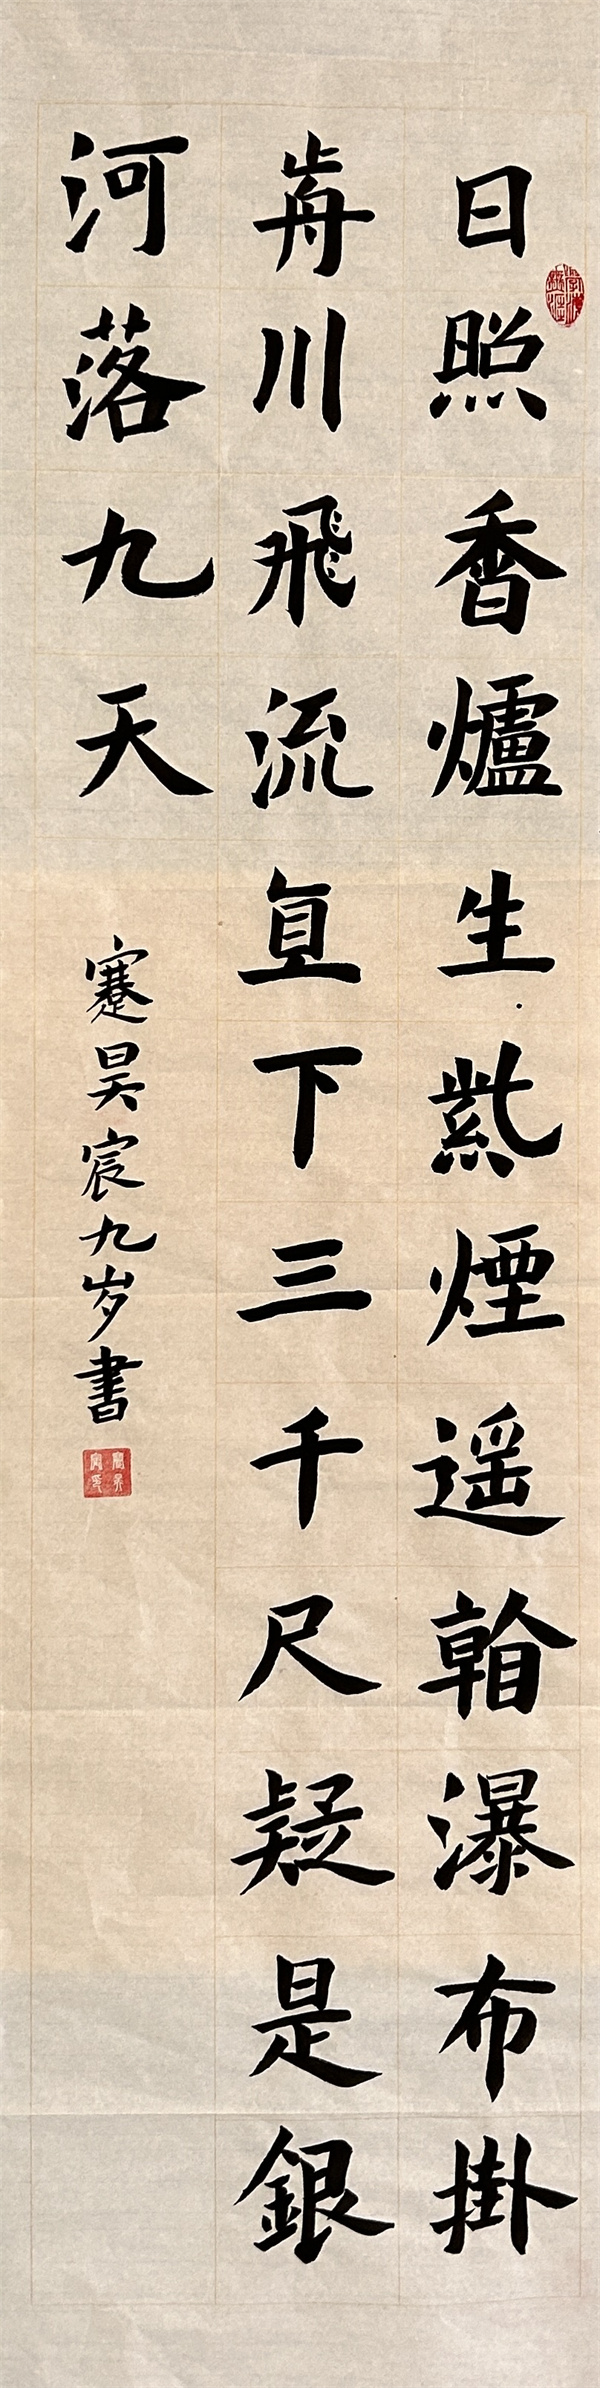 日照香爐生紫煙遥看瀑布掛
歬川飛流直下三千尺疑是銀
河落九天
蹇昊宸九岁書